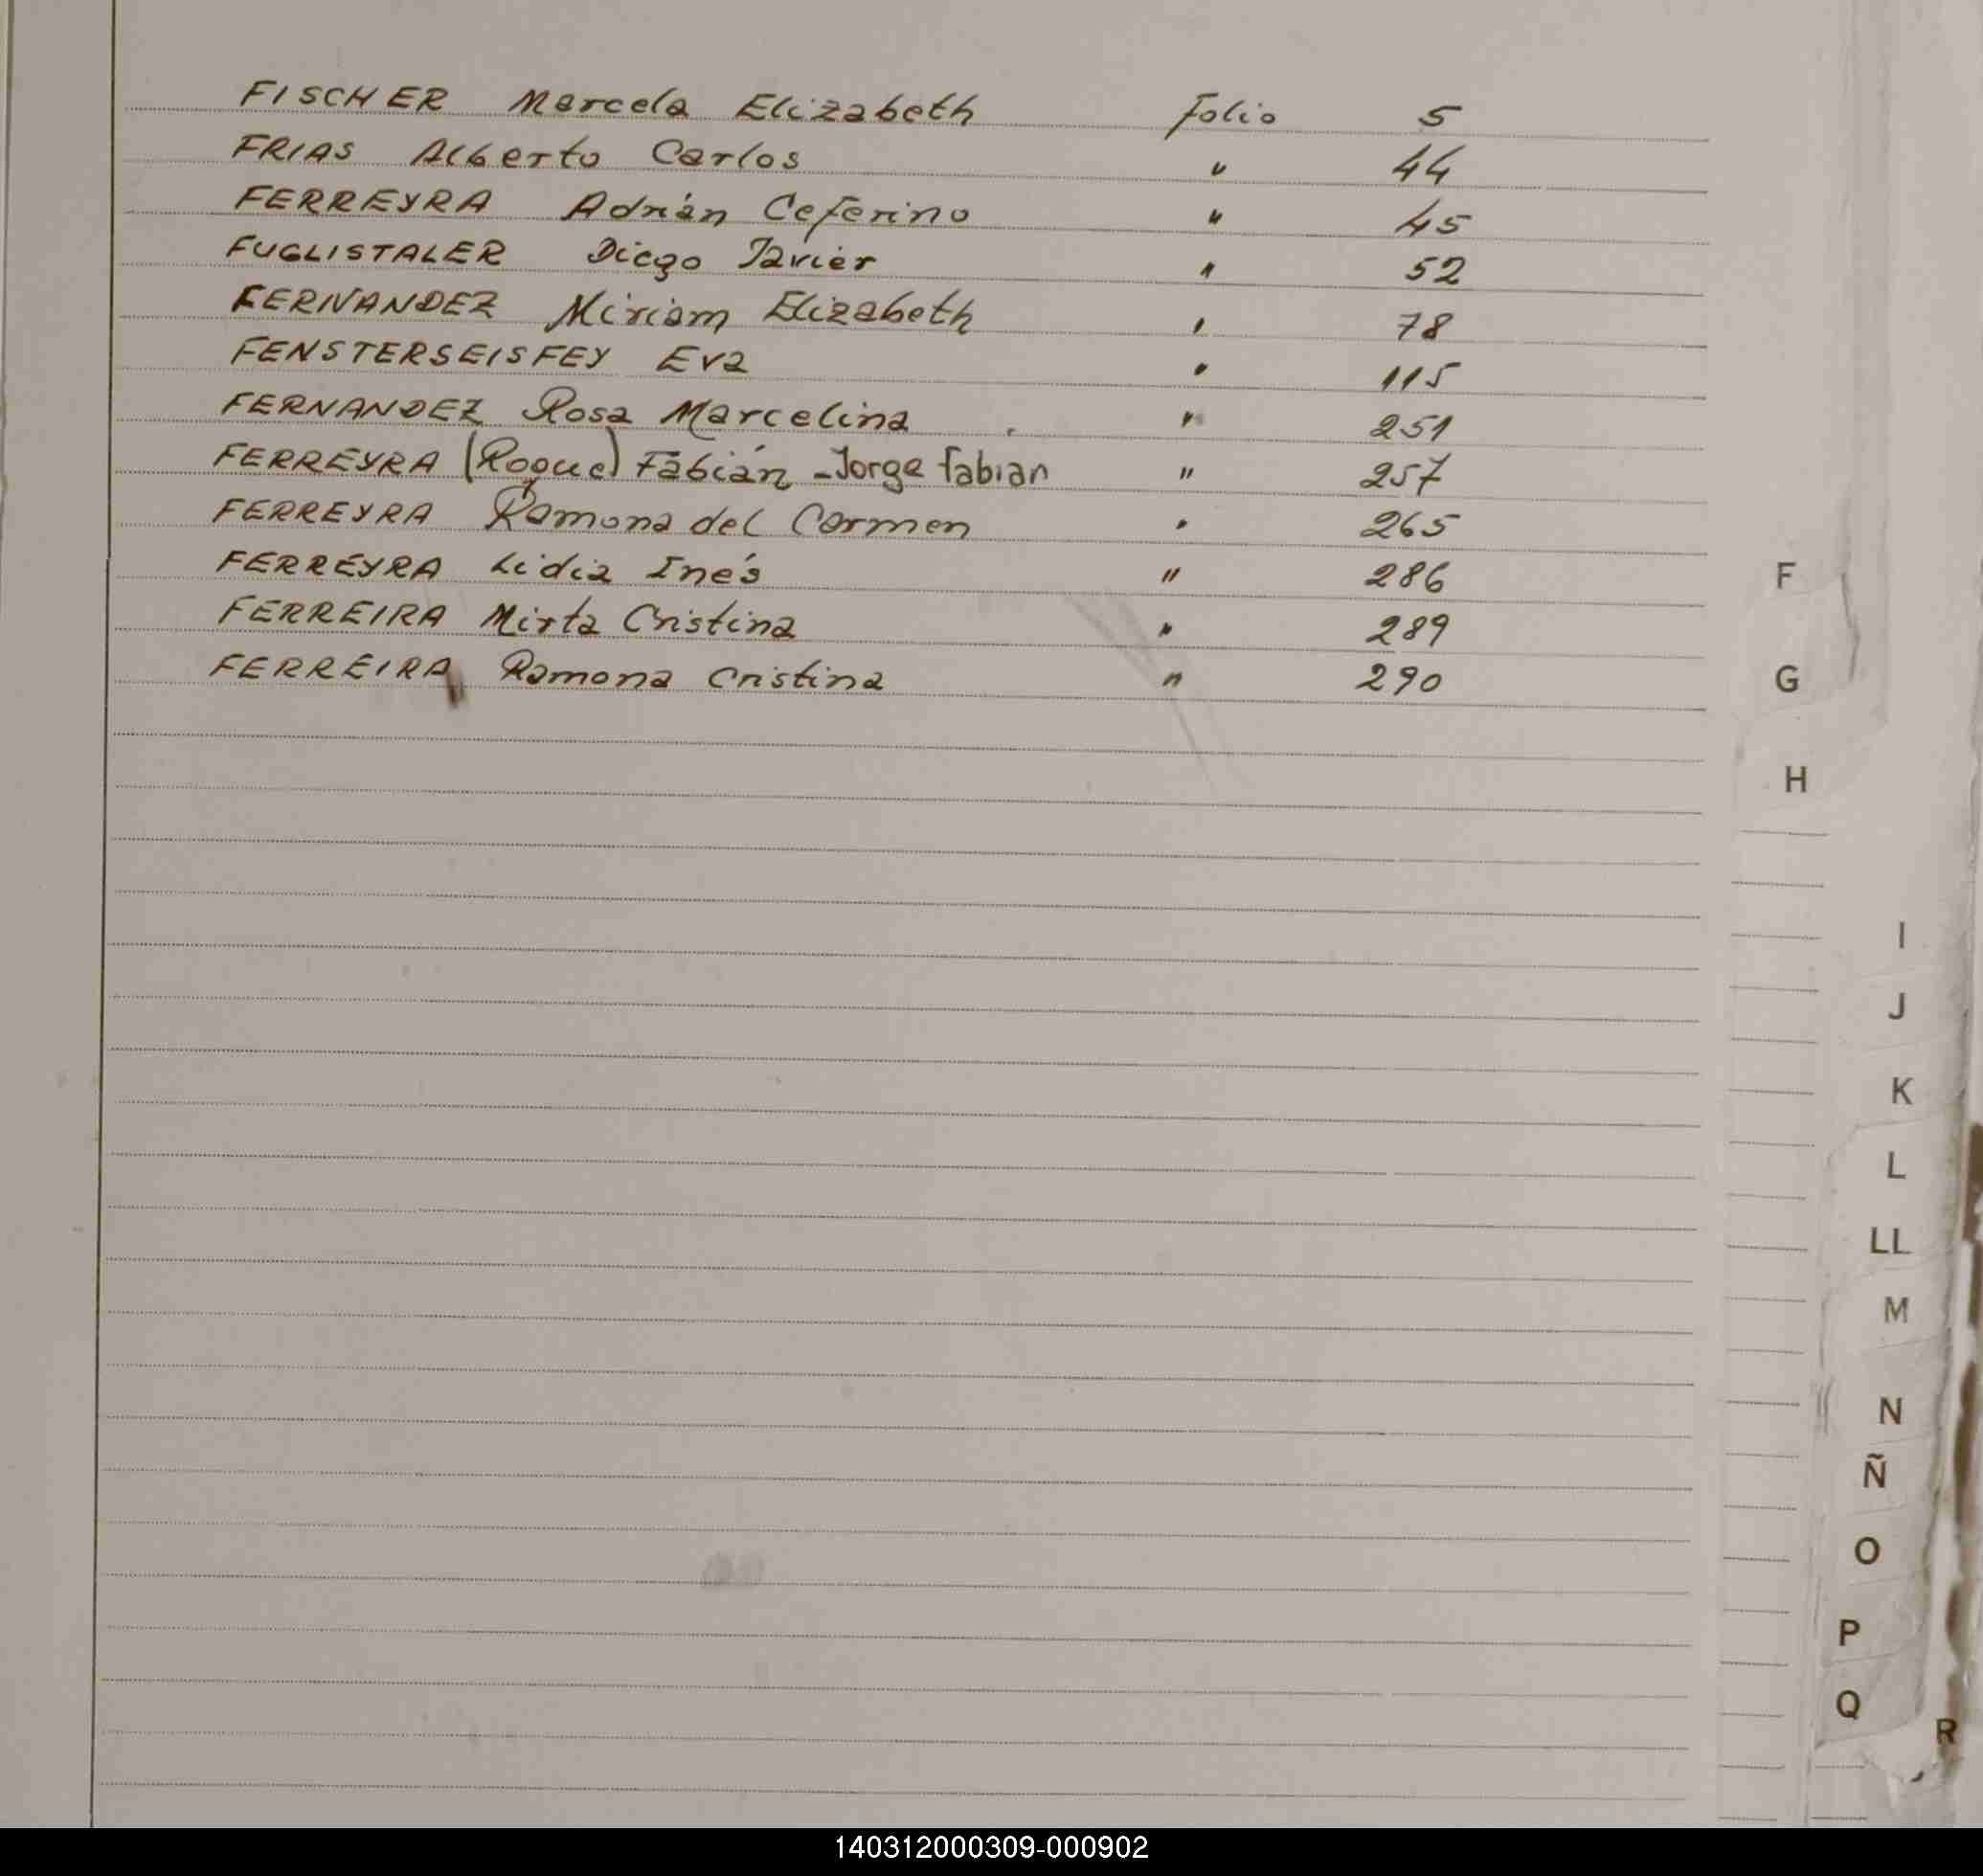 FISCHER Marcela Elizabeth Folio 5
FRIAS Alberto Carlos " 44
FERREYRA Adrián Ceferino " 45
FUGLISTALER Diego Javier " 52
FERNANDEZ Miriam Elizabeth " 78
FENSTERSEISFEY Eva " 115
FERNANDEZ Rosa Marcelina " 251
FERREYRA (Roque) Fabián - Jorge fabian " 257
FERREYRA Ramona del Carmen " 265
FERREYRA Lidia Inés " 286
FERREIRA Mirta Cristina " 289
FERREIRA Ramona Cristina " 290
F
G
H
I
J
K
L
LL
M
N
Ñ
O
P
Q
R
140312000309-000902